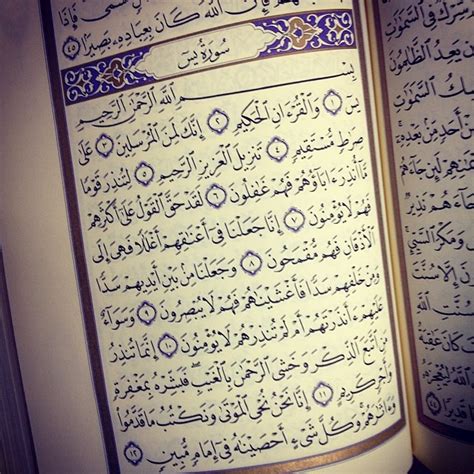 مُّسَمًّى فَإِذَا
فَإِنَّ ٱللَّهَ كَانَ بِعِبَادِهِۦ بَصِيرًا ٤٥
سُورَةُ يسٓ
بِسْمِ ٱللَّهِ ٱلرَّحْمَٰنِ ٱلرَّحِيمِ
يسٓ ١ وَٱلْقُرْءَانِ ٱلْحَكِيمِ ٢ إِنَّكَ لَمِنَ ٱلْمُرْسَلِينَ ٣ عَلَىٰ
صِرَٰطٍ مُّسْتَقِيمٍ ٤ تَنزِيلَ ٱلْعَزِيزِ ٱلرَّحِيمِ ٥ لِتُنذِرَ قَوْمًا
مَّآ أُنذِرَ ءَابَآؤُهُمْ فَهُمْ غَٰفِلُونَ ٦ لَقَدْ حَقَّ ٱلْقَوْلُ عَلَىٰٓ أَكْثَرِهِمْ
فَهُمْ لَا يُؤْمِنُونَ ٧ إِنَّا جَعَلْنَا فِىٓ أَعْنَٰقِهِمْ أَغْلَٰلًا فَهِىَ إِلَى
ٱلْأَذْقَانِ فَهُم مُّقْمَحُونَ ٨ وَجَعَلْنَا مِنۢ بَيْنِ أَيْدِيهِمْ سَدًّا
وَمِنْ خَلْفِهِمْ سَدًّا فَأَغْشَيْنَٰهُمْ فَهُمْ لَا يُبْصِرُونَ ٩ وَسَوَآءٌ
عَلَيْهِمْ ءَأَنذَرْتَهُمْ أَمْ لَمْ تُنذِرْهُمْ لَا يُؤْمِنُونَ ١٠ إِنَّمَا تُنذِرُ
مَنِ ٱتَّبَعَ ٱلذِّكْرَ وَخَشِىَ ٱلرَّحْمَٰنَ بِٱلْغَيْبِ فَبَشِّرْهُ بِمَغْفِرَةٍ
وَأَجْرٍ كَرِيمٍ ١١ إِنَّا نَحْنُ نُحْىِ ٱلْمَوْتَىٰ وَنَكْتُبُ مَا قَدَّمُوا۟
وَءَاثَٰرَهُمْ وَكُلَّ شَىْءٍ أَحْصَيْنَٰهُ فِىٓ إِمَامٍ مُّبِينٍ ١٢